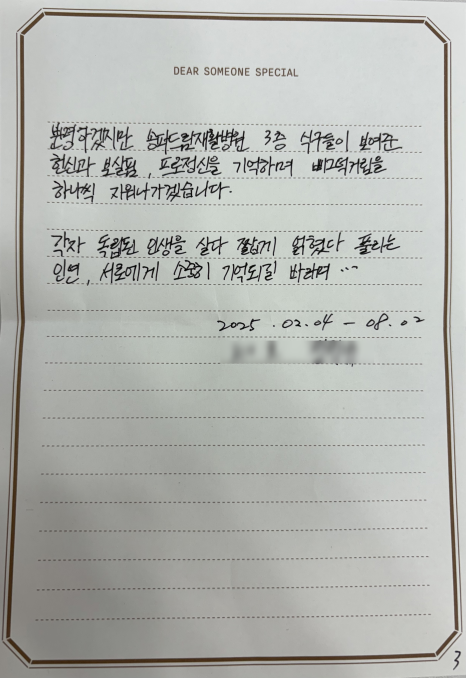 DEAR SOMEONE SPECIAL
분명하겠지만 송파드림재활병원 3층 식구들이 보여준
헌신과 보살핌, 프로정신을 기억하며 삐그덕거림을
하나씩 지워나가겠습니다.
각자 독립된 인생을 살다 짧게 얽혔다 풀리는
인연, 서로에게 소중히 기억되길 바라며 ...
2025. 02. 04 - 08. 02
3